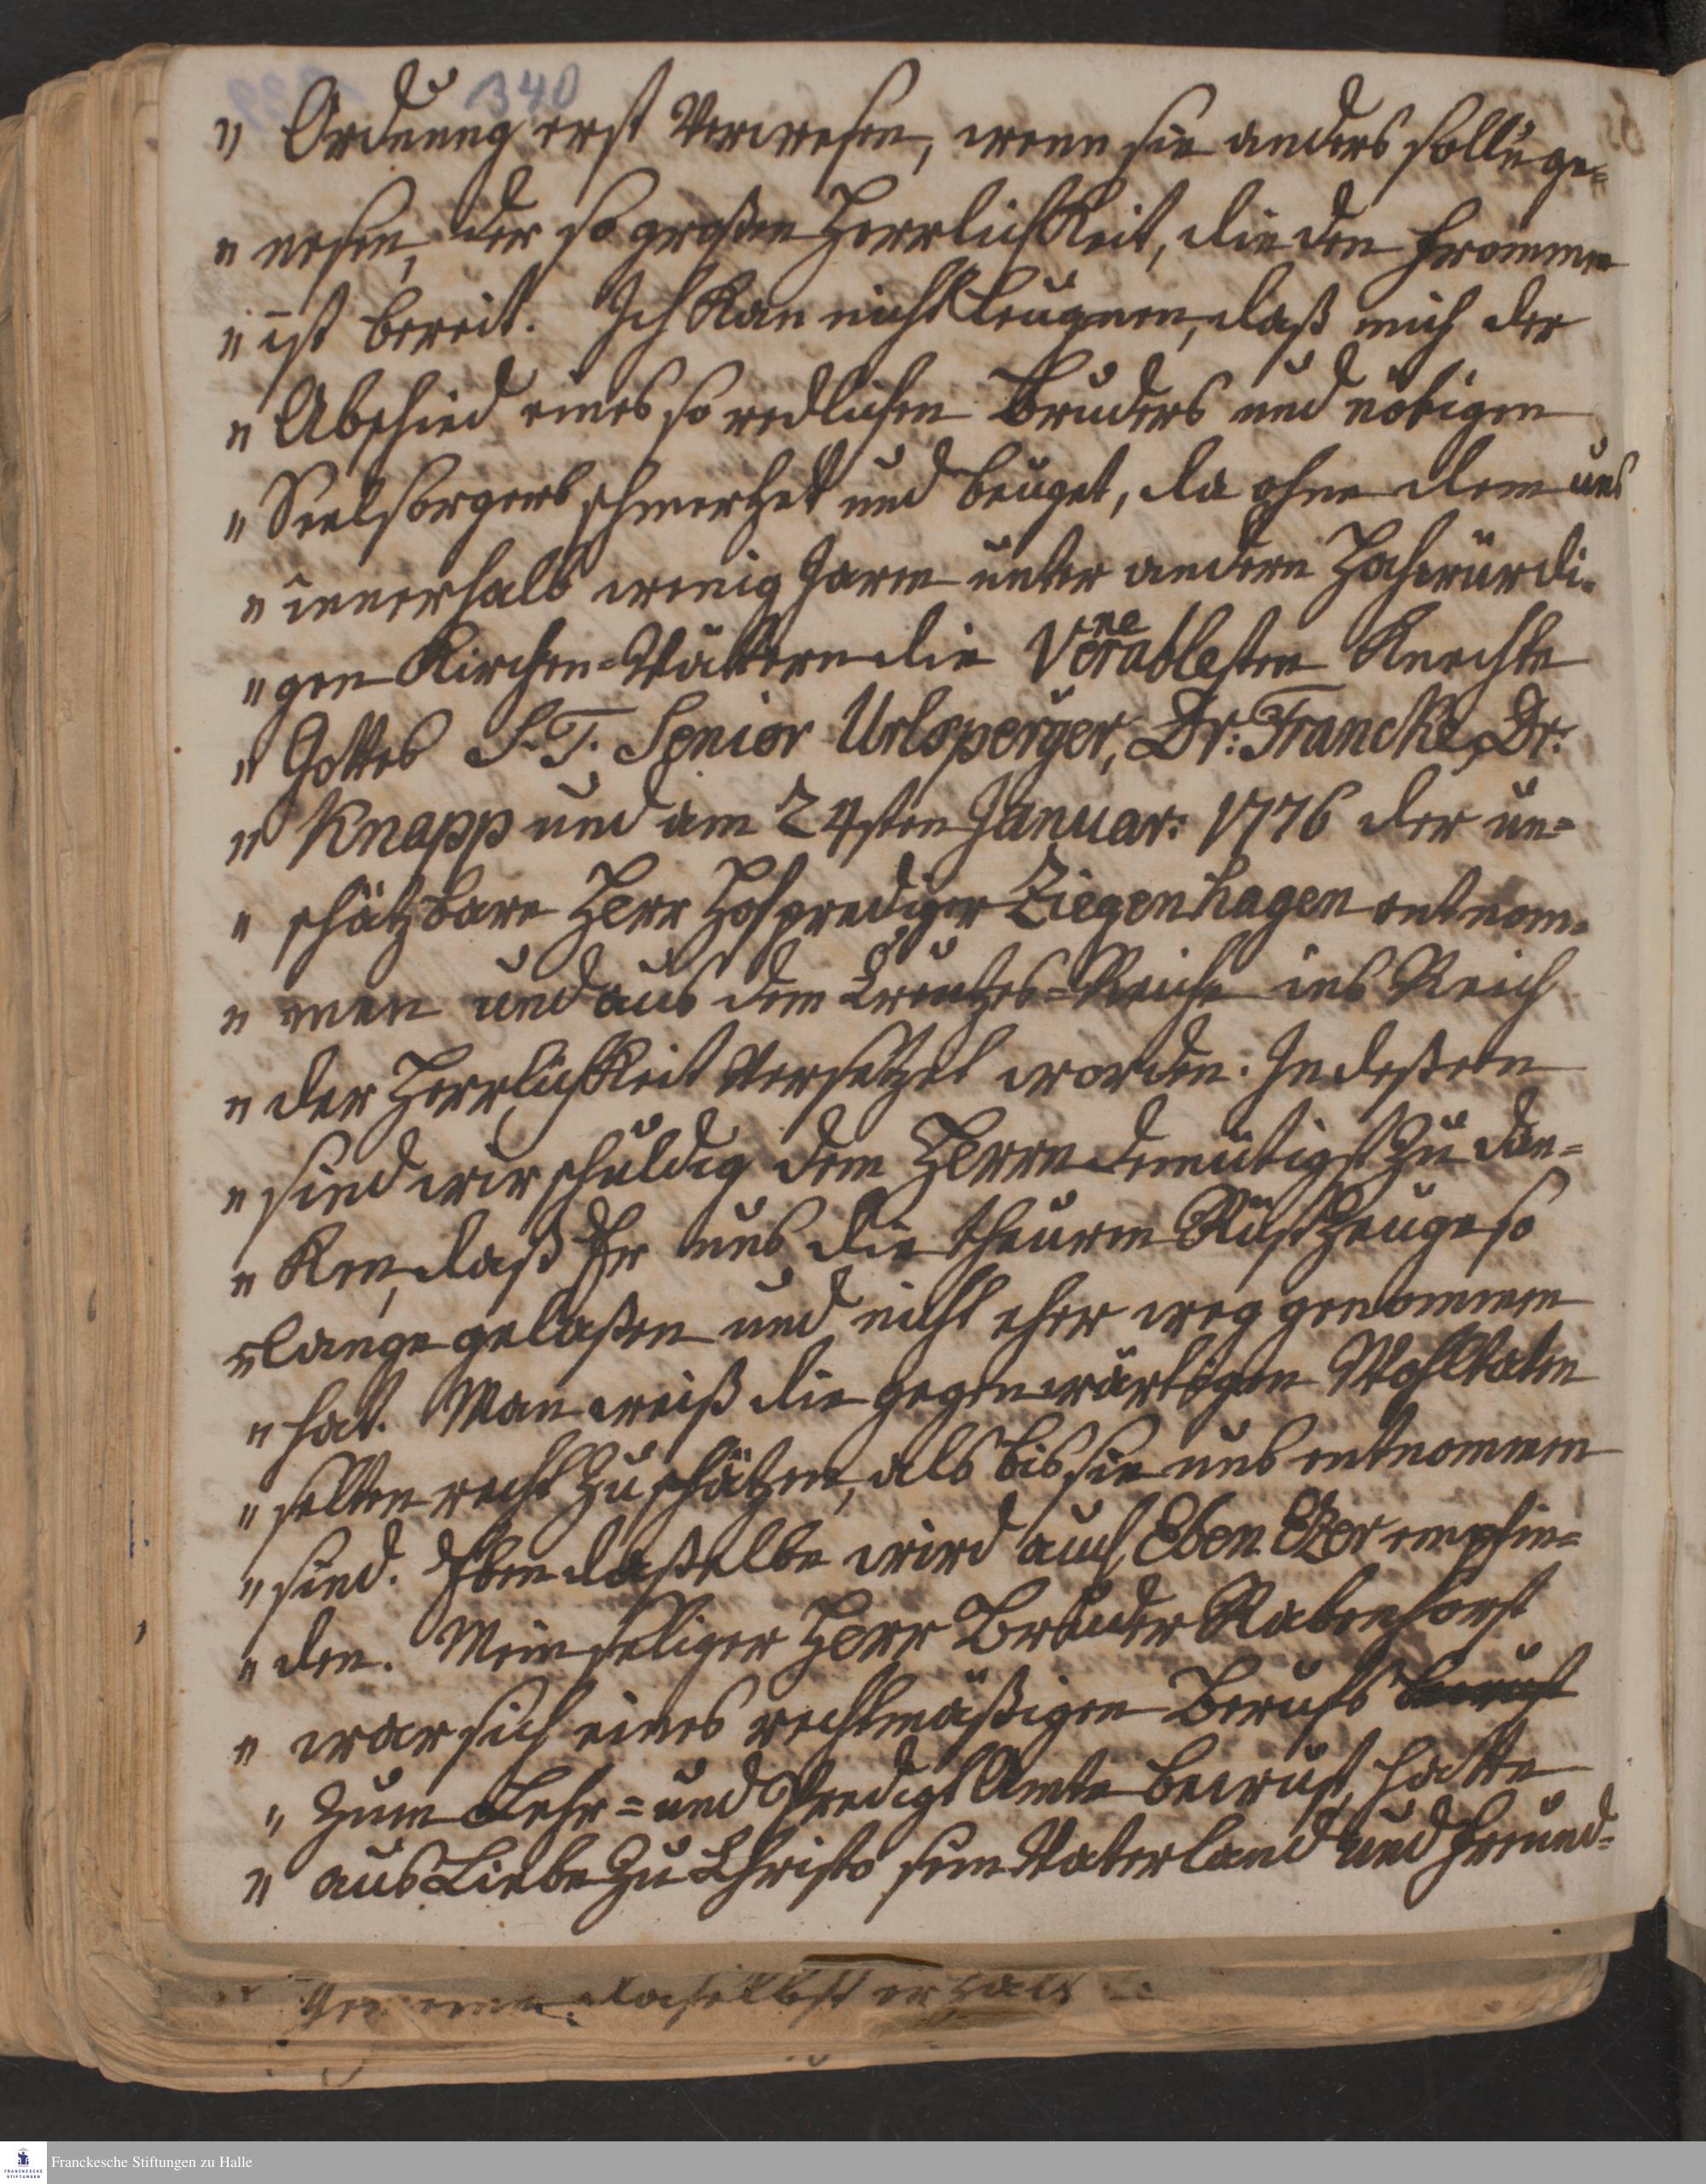 340
" Ordnung erst verwesen, wenn sie anders soll ge-
" nesen, der so großen Herrlichkeit, die den Frommen
" ist bereit. Ich kan nicht leugnen, daß mich der
" Abschied eines so redlichen Bruders und nötigen
" Seelsorgers schmertzet und beuget, da ohne dem uns
" innerhalb wenig Jaren unter andern Hochwürdi-
" gen Kirchen-Vättern die Venerablesten Knechte
" Gottes S. T. Senior Urlsperger, Dr: Francke, Dr:
" Knapp und am 24sten Januar: 1776 der un-
" schätzbare Herr Hofprediger Ziegenhagen entnom-
" men und aus dem Creutzes-Reiche ins Reich
" der Herrlichkeit versetzet worden. Indeßen
" sind wir schuldig dem Herrn demütigst zu dan-
" ken, daß Er uns die theuren Rüstzeuge so
" lange gelaßen und nicht eher weg genommen
" hat. Man weiß die gegenwärtigen Wohltaten
" selten recht zu schätzen, als bis sie uns entnommen
" sind. Eben daßelbe wird auch Eben Ezer empfin-
" den. Mein seliger Herr Bruder Rabenhorst
" war sich eines rechtmäßigen Berufs
" zum Lehr- und Predigt Amte bewust, hatte
" aus Liebe zu Christo sein Vaterland und Freund-
daselbst erhalt
Franckesche Stiftungen zu Halle